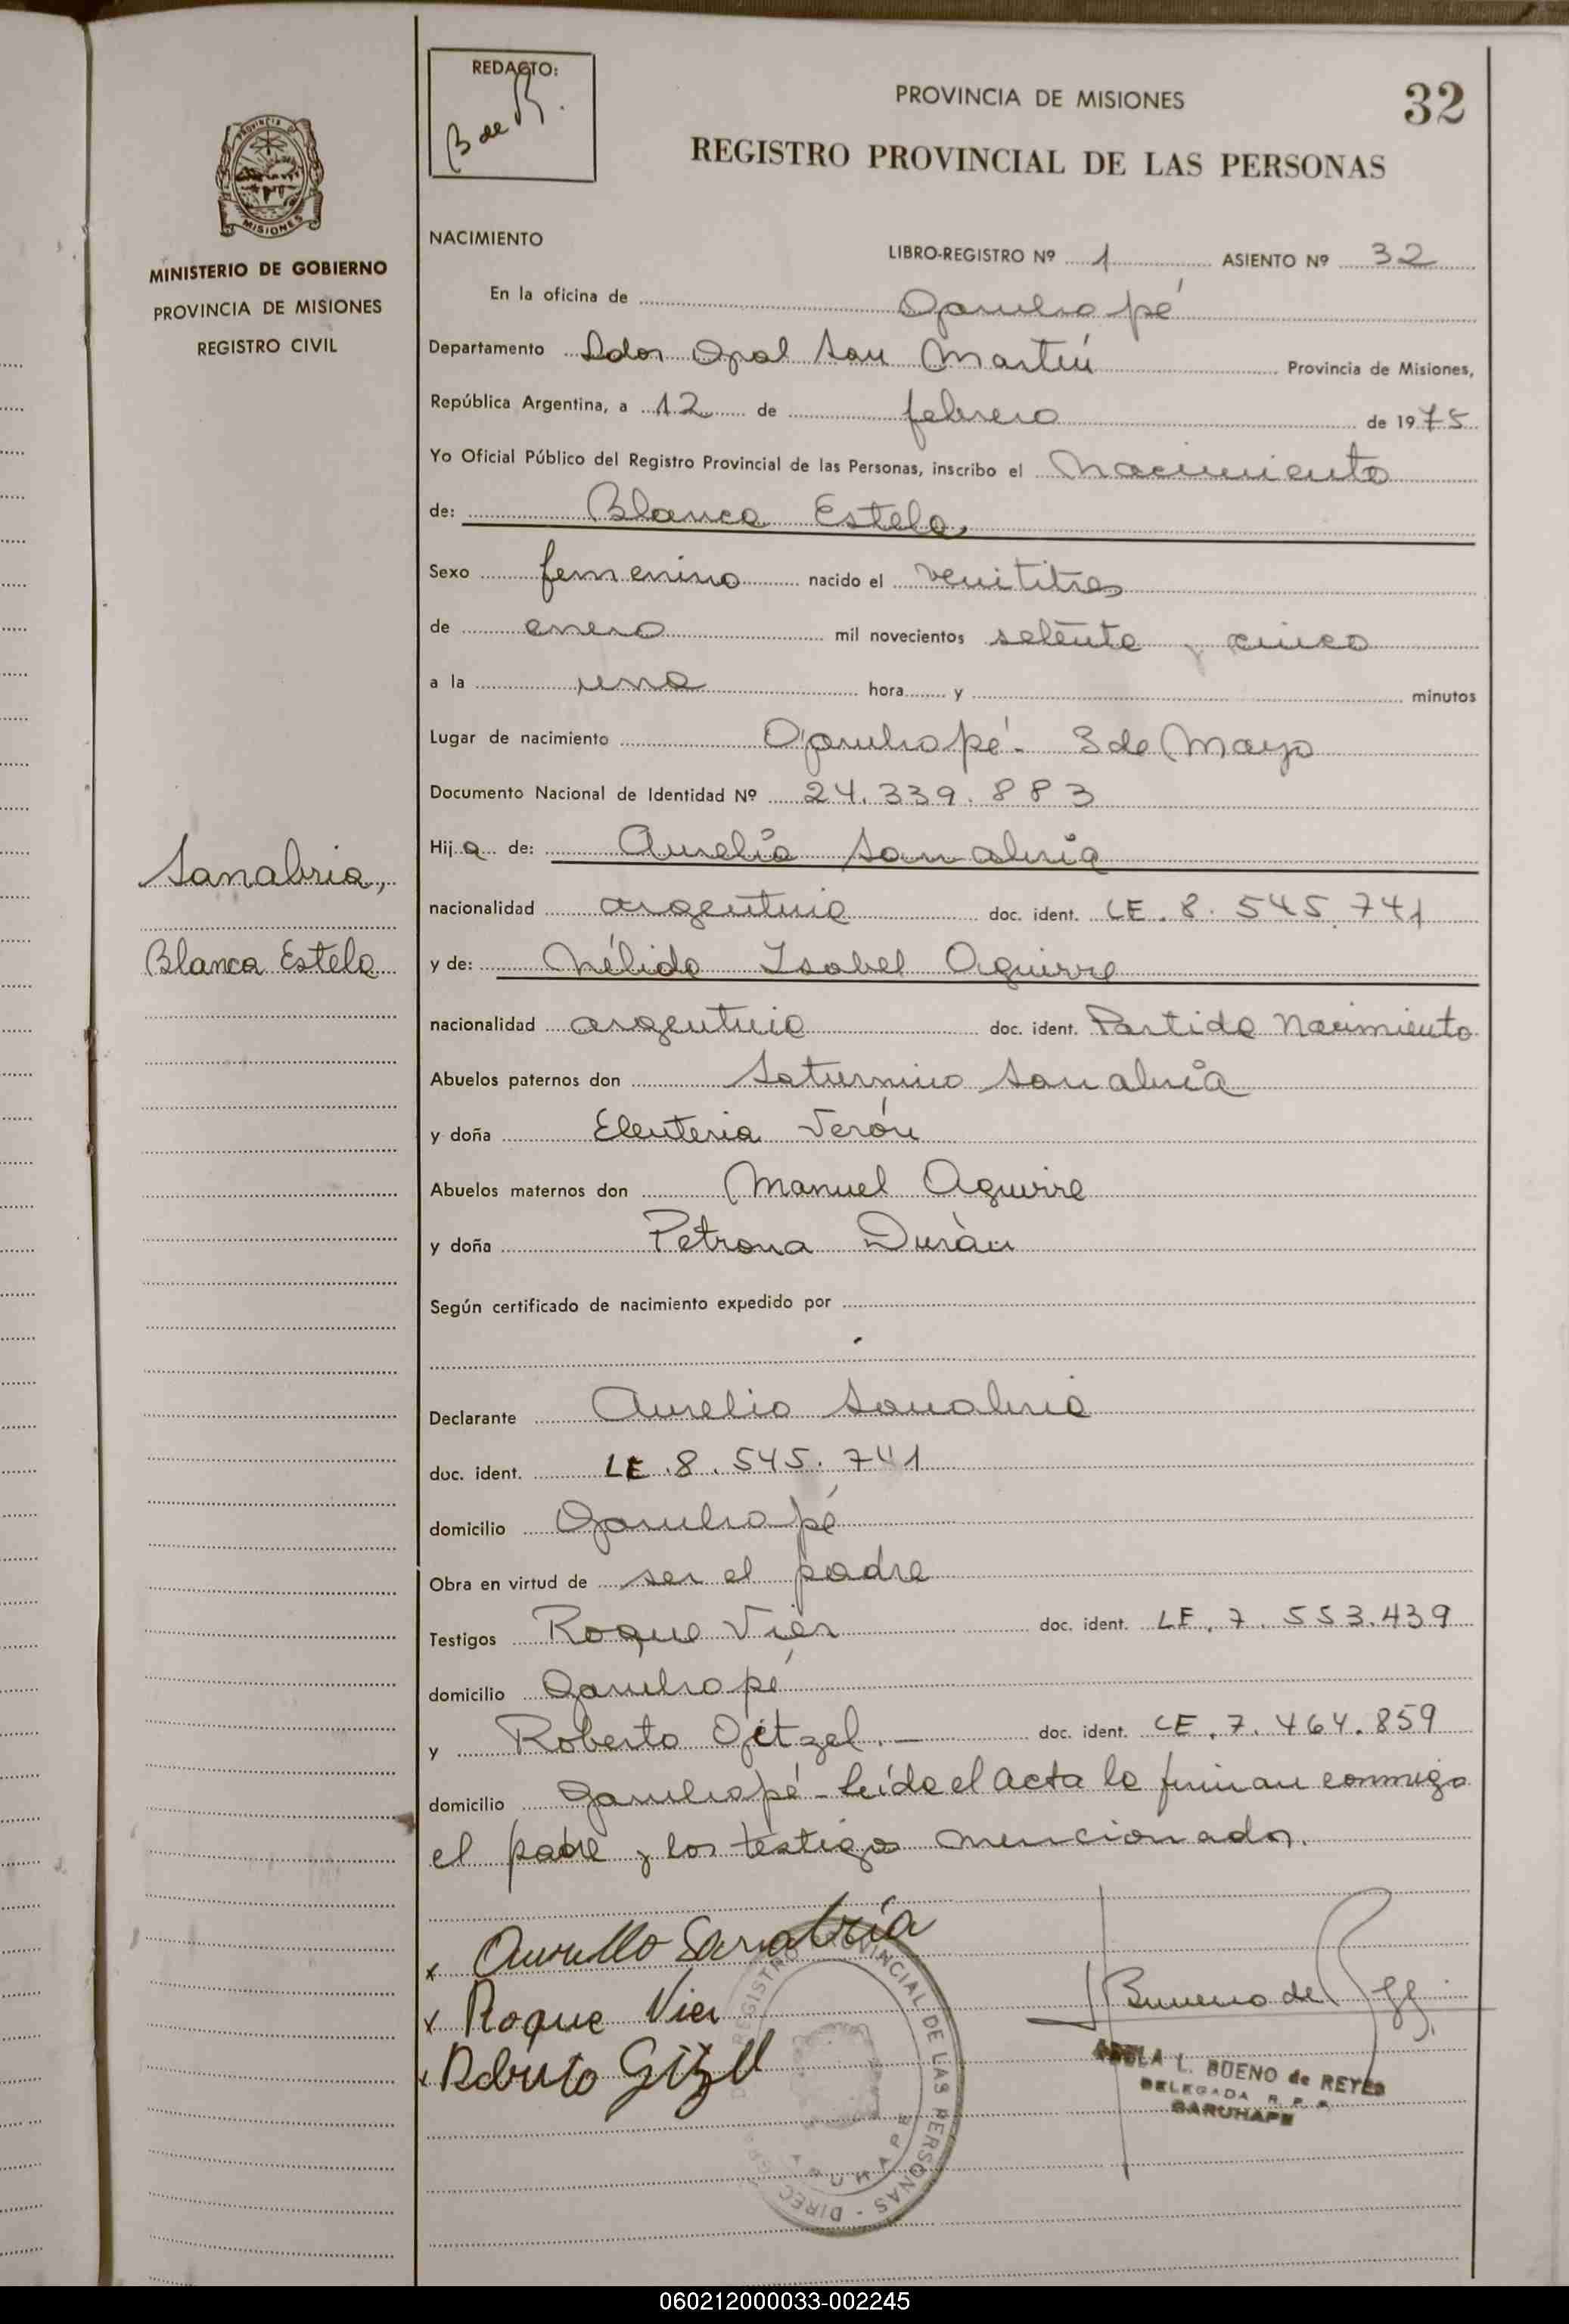 REDACTO:
B de R.
PROVINCIA DE MISIONES
32
REGISTRO PROVINCIAL DE LAS PERSONAS
PROVINCIA D
MISIONES
MINISTERIO DE GOBIERNO
PROVINCIA DE MISIONES
REGISTRO CIVIL
NACIMIENTO
LIBRO-REGISTRO Nº 1 ASIENTO Nº 32
En la oficina de Garuhapé
Departamento Ldor Gral San Martín Provincia de Misiones,
República Argentina, a 12 de febrero de 1975
Yo Oficial Público del Registro Provincial de las Personas, inscribo el Nacimiento
de: Blanca Estela,
Sexo femenino nacido el veintitres
de enero mil novecientos setenta y cinco
a la una hora y minutos
Lugar de nacimiento Garuhapé - 3 de Mayo
Documento Nacional de Identidad Nº 24.339.883
Hija de: Aurelio Sanabria
nacionalidad argentina doc. ident. LE. 8.545.741
y de: Nélida Isabel Aguirre
nacionalidad argentina doc. ident. Partida Nacimiento
Abuelos paternos don Saturnino Sanabria
y doña Eleuteria Verón
Abuelos maternos don Manuel Aguirre
y doña Petrona Durán
Según certificado de nacimiento expedido por
Declarante Aurelio Sanabria
doc. ident. LE. 8.545.741
domicilio Garuhapé
Obra en virtud de ser el padre
Testigos Roque Vier doc. ident. LE. 7.553.439
domicilio Garuhapé
y Roberto doc. ident. LE. 7.464.859
domicilio Garuhapé - Leída el acta la firman conmigo
el padre y los testigos mencionados.
Sanabria,
Blanca Estela
x Aurelio Sanabria
x Roque Vier
x Roberto
Bueno de
REGISTRO PROVINCIAL DE LAS PERSONAS - DIREC
ADELA L. BUENO de REYES
DELEGADA R. P. P.
GARUHAPE
060212000033-002245